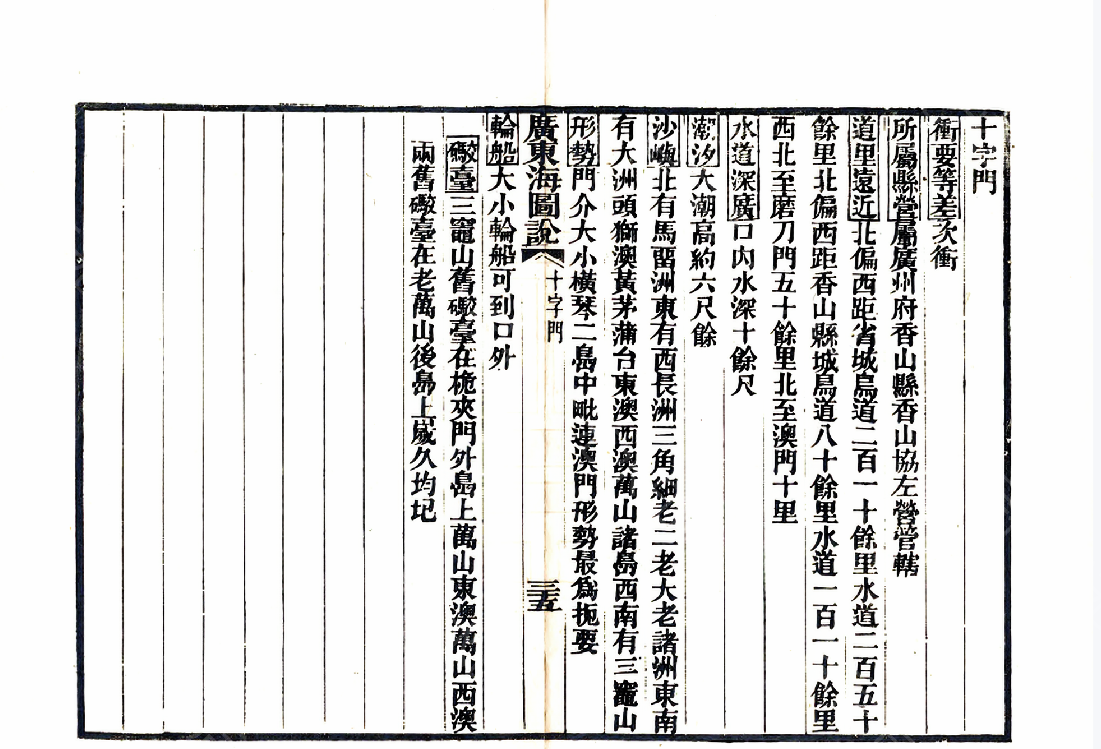 十字門
衝要等差次衝
所屬縣營屬廣州府香山縣香山協左營管轄
道里遠近北偏西距省城鳥道二百一十餘里水道二百五十
餘里北偏西距香山縣城鳥道八十餘里水道一百一十餘里
西北至磨刀門五十餘里北至澳門十里
水道深廣口內水深十餘尺
潮汐大潮高約六尺餘
沙嶼北有馬畱洲東有西長洲三角細老二老大老諸洲東南
有大洲頭獅澳黃茅蒲台東澳西澳萬山諸島西南有三竈山
形勢門介大小橫琴二島中毗連澳門形勢最為扼要
廣東海圖說
十字門
三五
輪船大小輪船可到口外
礮臺三竈山舊礮臺在桅夾門外島上萬山東澳萬山西澳
兩舊礮臺在老萬山後島上歲久均圮